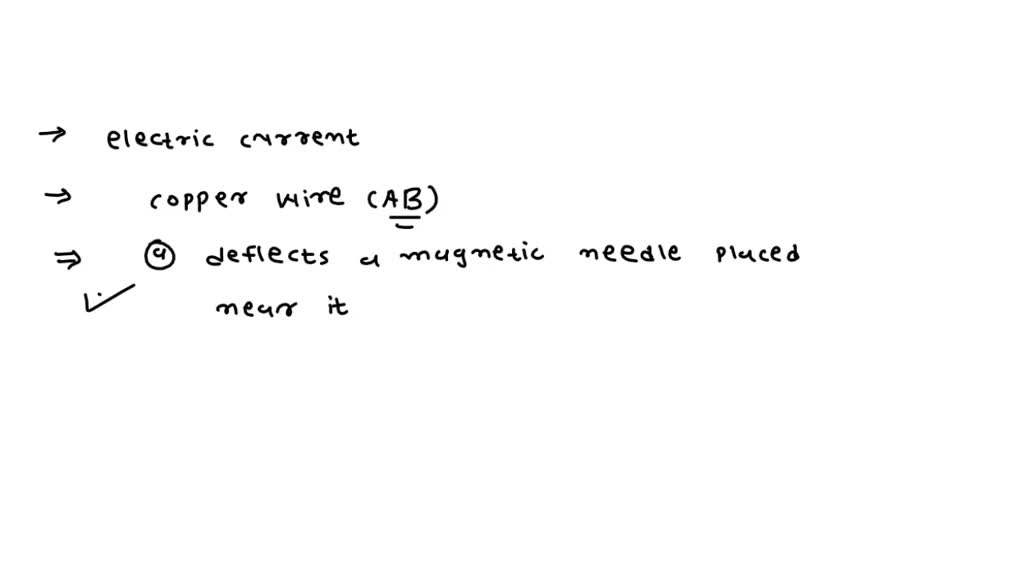 → electric current
→ copper wire (AB)
⇒ ⓐ deflects a magnetic needle placed
near it